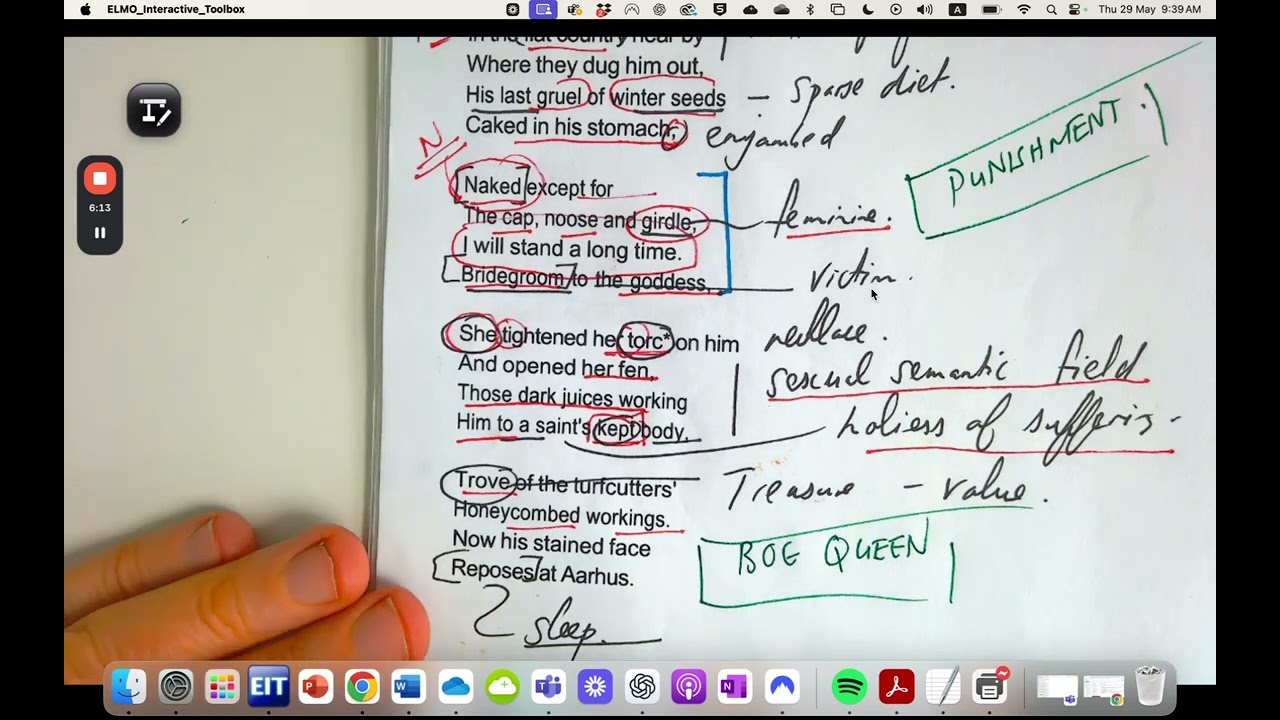 ELMO_Interactive_Toolbox
Thu 29 May 9:39 AM
In the flat country near by
Where they dug him out,
His last gruel of winter seeds – Sparse diet.
Caked in his stomach, enjambed
PUNISHMENT
N
Naked except for
The cap, noose and girdle, feminine.
I will stand a long time.
Bridegroom to the goddess, victim.
She tightened her torc* on him necklace.
And opened her fen, sexual semantic field
Those dark juices working
Him to a saint's kept body, holiess of suffering.
Trove of the turfcutters' Treasure – value.
Honeycombed workings.
Now his stained face BOG QUEEN
Reposes at Aarhus.
sleep.
6:13
EIT